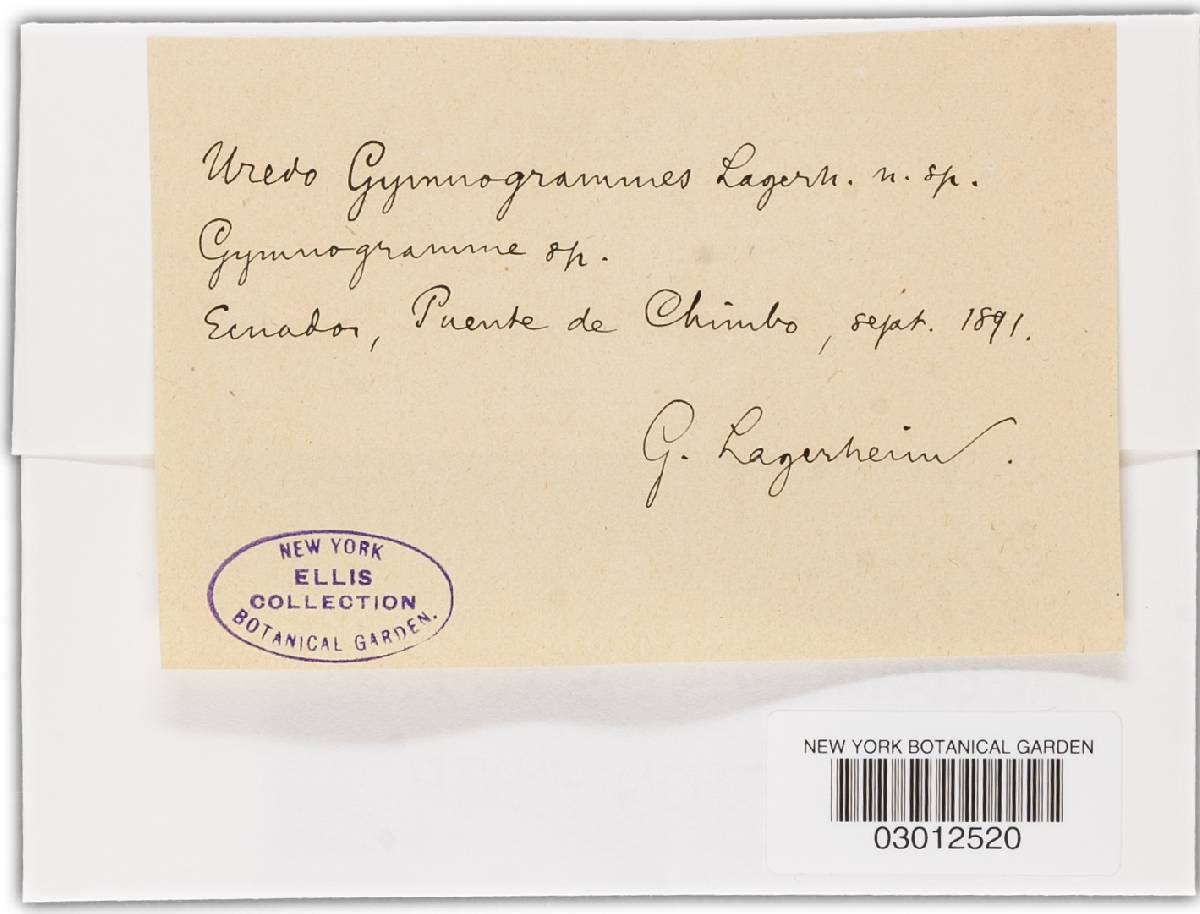 Uredo Gymnogrammes Lagerh. n. sp.
Gymnogramme sp.
Ecuador, Puente de Chimbo, sept. 1891.
G. Lagerheim.
NEW YORK
ELLIS
COLLECTION
BOTANICAL GARDEN.
NEW YORK BOTANICAL GARDEN
03012520